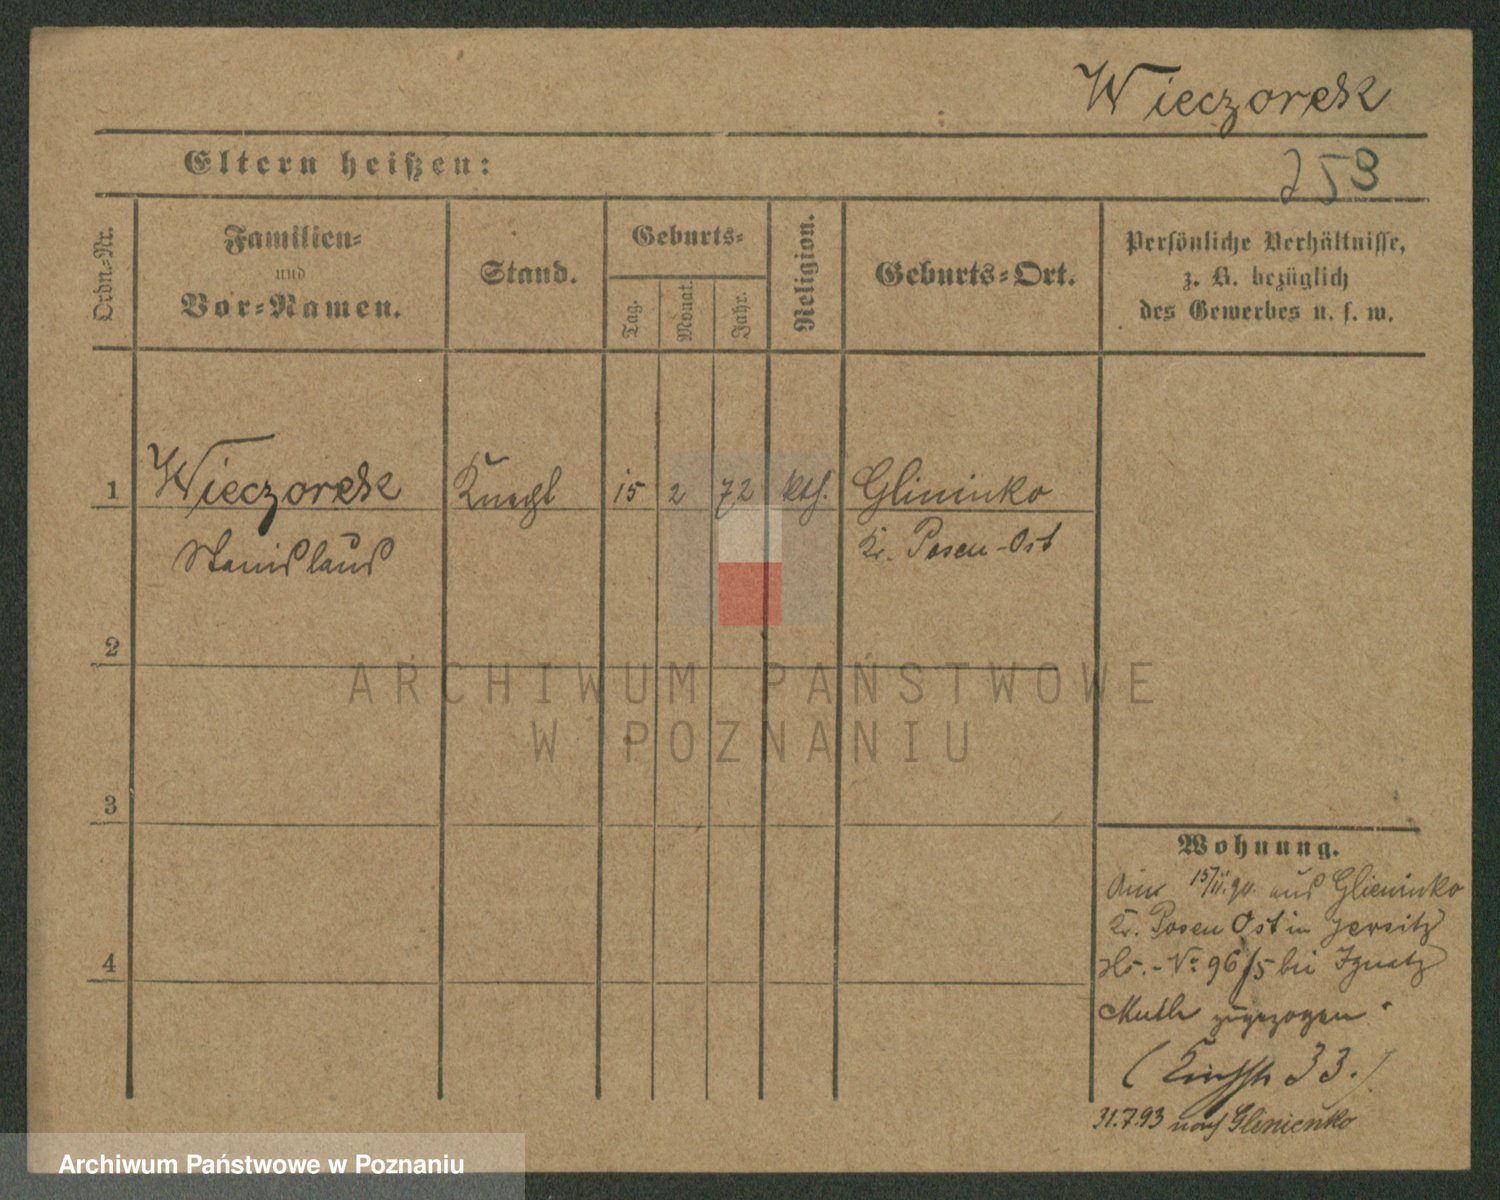 Wieczorek
Eltern heißen:
258
Ordn.-Nr.
Familien-
und
Vor-Namen.
Stand.
Geburts-
Tag.
Monat.
Jahr.
Religion.
Geburts-Ort.
Persönliche Verhältnisse,
z. B. bezüglich
des Gewerbes u. s. w.
1
Wieczorek
Stanislaus
Knecht
15
2
72
kth.
Glininko
Kr. Posen-Ost
2
3
4
ARCHIWUM PAŃSTWOWE
W POZNANIU
Wohnung.
Am 15/II. 90. aus Glieninko
Kr. Posen Ost in Jersitz
No 96/5 bei Ignatz
Muth zugezogen.
33.)
31.7.93 nach Glinienko
Archiwum Państwowe w Poznaniu